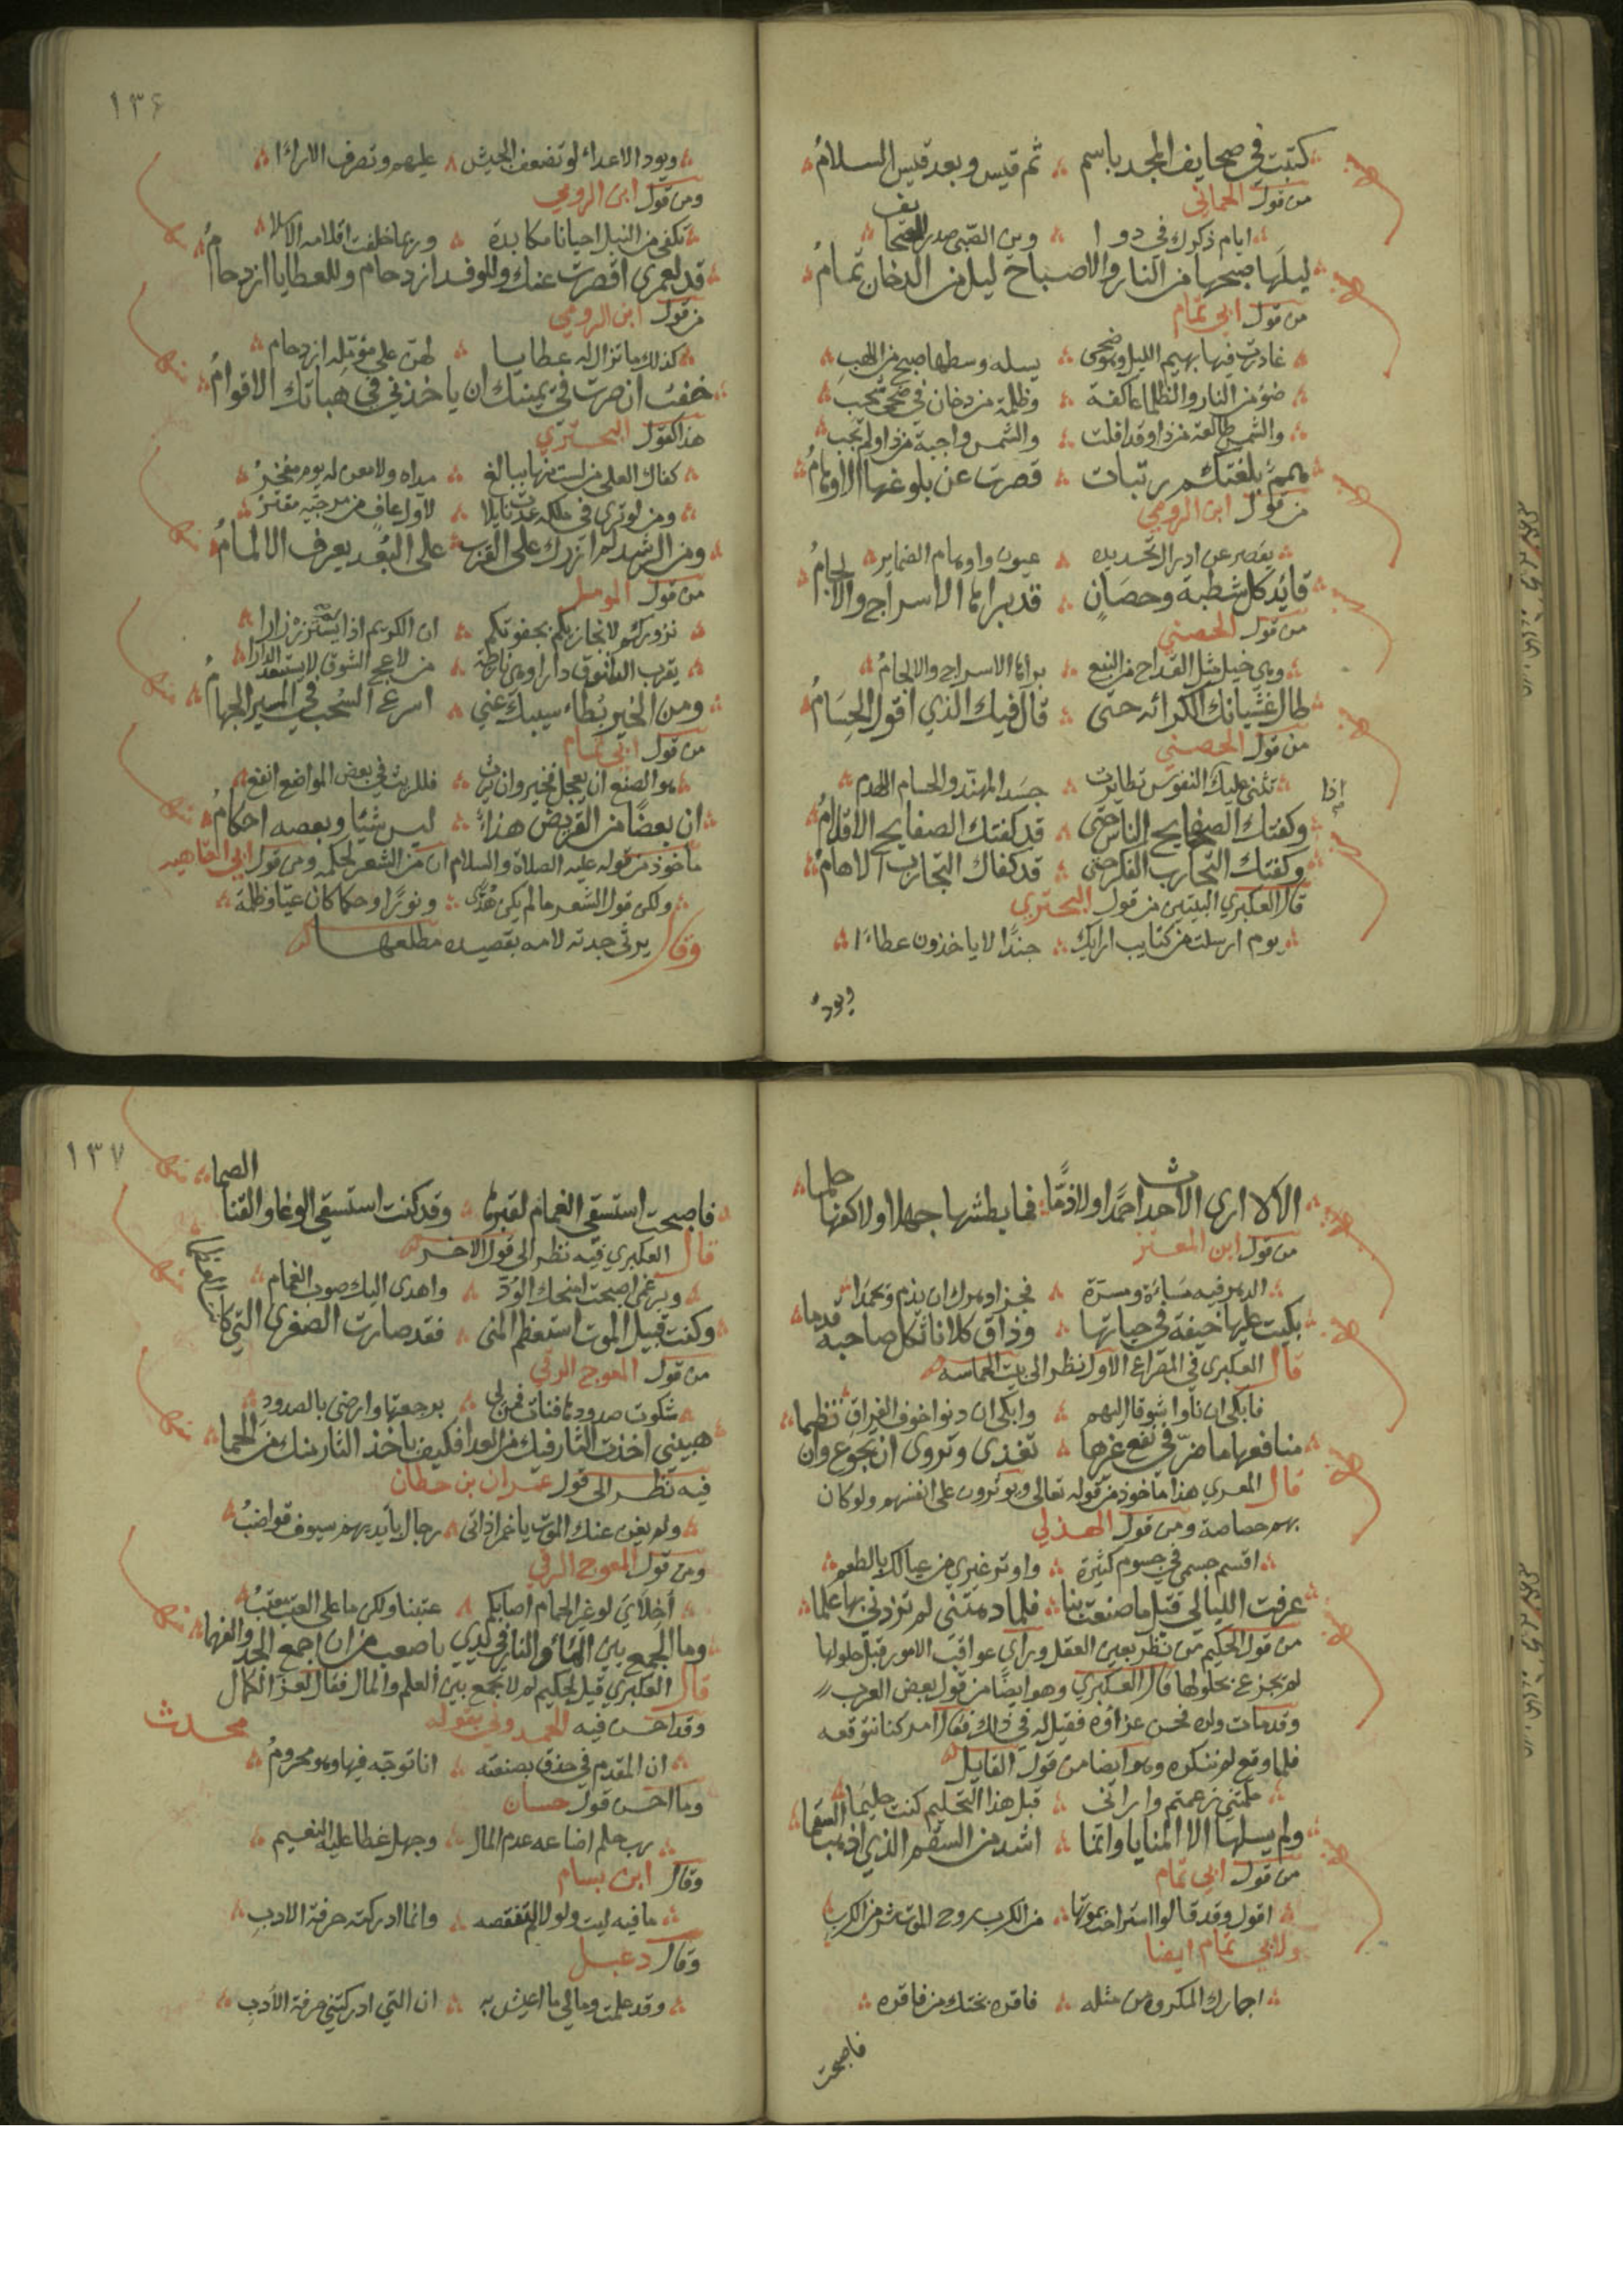 كتبت في صحايف المجد باسم ∴ ثم قيس وبعد قيس السلام
من قول الحماني
ايام ذكرك في دوا ∴ وين الصبى صدر الصحايف
ليلها صبحها من النار والاصباح ليل من الدخان تمام
من قول ابي تمام
غادرت فيها بهيم الليل وهو ضحى ∴ يسله وسطها صبح من اللهب
ضوء من النار والظلما عاكفة ∴ وظلمة من دخان في ضحى شحب
والشمس طالعة من ذا وقد افلت ∴ والشمس واجبة من ذا ولم تجب
همم بلغتكم رتبات ∴ قصرت عن بلوغها الاوهام
من قول ابن الرومي
يقصر عن ادراك تحديده ∴ عيون واوهام الضماير
قائد كل شطبة وحصان ∴ قد براها الاسراج والالجام
من قول الحصني
وهي خيل مثل القداح من النبع ∴ براها الاسراج والالجام
طال غشيانك الكرائه حتى ∴ قال فيك الذي اقول الحسام
من قول الحصني
تثني عليك النفوس اذا تطايرت ∴ جسد المهند والحسام اللهدم
وكفتك الصفايح الناس حتى ∴ قد كفتك الصفايح الاقلام
وكفتك التجارب الفكر حتى ∴ قد كفاك التجارب الالهام
قال العكبري البيتين من قول البحتري
يوم ارسلت من كتايب ارايك ∴ جندا لا ياخذون عطاءا
ويود
١٣٦
ويود الاعداء لو تضعف الجيش ∴ عليهم وتصرف الاراءا
ومن قول ابن الرومي
تكفي من النبل احيانا مكابدة ∴ وربما خلفت اقلامه الاسلا
قد لعمري اقصرت عنك وللوفد ازدحام وللعطايا ازدحام
من قول ابن الرومي
كذلك ما تزال له عطايا ∴ لهن على مؤمله ازدحام
خفت ان صرت في يمينك ان ياخذني في هباتك الاقوام
هذا كقول البحتري
كفاك العلى من لست فيها ببالغ ∴ مداه ولا مغن له يوم مفخر
ومن لو ترى في ملكه عدت نايلا ∴ لاول عاف من مرجيه مقتر
ومن الرشد لم ازرك على القرب ∴ على البعد يعرف الالمام
من قول المومل
نزوركم لا نجازيكم بجفوتكم ∴ ان الكريم اذا لم يستزر زارا
يقرب الشوق دارا وهي نازحة ∴ من لاعج الشوق لا يستبعد الدارا
ومن الخير بطاء سيبك عني ∴ اسرع السحب في المسير الجهام
من قول ابي تمام
هو الصنع ان يعجل فخير وان يرث ∴ فللريث في بعض المواضع انفع
ان بعضا من القريض هذاء ∴ ليس شيئا وبعضه احكام
ماخوذ من قوله عليه الصلاة والسلام ان من الشعر لحكمه ومن قول ابي العتاهيه
ولكن قول الشعر ما لم يكن هدى ∴ ونورا وحكما كان عيا وظلمة
وقال يرثي جدته لامه بقصيده مطلعها
الا لا ارى الاحداث حمدا ولا ذما ∴ فما بطشها جهلا ولا كفها حلما
من قول ابن المعتز
الدهر فيه مساءة ومسرة ∴ فجزاء دهرك ان يذم ويحمدا
بكيت عليها خيفة في حياتها ∴ وذاق كلانا ثكل صاحبه قدما
قال العكبري في المصراع الاول نظر الى بيت الحماسه
فابكي ان ناوا شوقا اليهم ∴ وابكي ان دنوا خوف الفراق
منافعها ما ضر في نفع غيرها ∴ تغذى وتروى ان تجوع وان تظما
قال المعري هذا ماخوذ من قوله تعالى ويوثرون على انفسهم ولو كان
بهم خصاصة ومن قول الهذلي
اقسم جسمي في جسوم كثيرة ∴ واوثر غيري من عيالك بالطعم
عرفت الليالي قبل ما صنعت بنا ∴ فلما دهتني لم تزدني بها علما
من قول الحكيم من نظر بعين العقل وراى عواقب الامور قبل حلولها
لم يجزع بحلولها قال العكبري وهو ايضا من قول بعض العرب
وقد مات ولده فحسن عزاؤه فقيل له في ذلك فقال امر كنا نتوقعه
فلما وقع لم ننكره وهو ايضا من قول القايل
حلمتني زعمتم واراني ∴ قبل هذا التحليم كنت حليما
ولم يسلها الا المنايا وانما ∴ اشد من السقم الذي اذهب السقما
من قول ابي تمام
اقول وقد قالوا استراحت بموتها ∴ من الكرب روح الموت شر من الكرب
ولابي تمام ايضا
اجارك المكروه من مثله ∴ فاقره نجتك من فاقره
فاصبحت
١٣٧
فاصبحت استسقي الغمام لقبرها ∴ وقد كنت استسقي الوغا والقنا الصما
قال العكبري فيه نظر الى قول الاخر
وبرغمي اصبحت امنحك الود ∴ واهدى اليك صوب الغمام
وكنت قبيل الموت استعظم المنى ∴ فقد صارت الصغرى التي كانت العظمى
من قول المعوج الرقي
شكوت صدودها فنات فمن لي ∴ برجعتها وارضى بالصدود
هبيني اخذت الثار فيك من العدا فكيف باخذ الثار منك من الحما
فيه نظر الى قول عمران بن حطان
ولم يغن عنك الموت يا حمزاذ اتى ∴ رجال بايديهم سيوف قواضب
ومن قول المعوج الرقي
اخلاي لو غير الحمام اصابكم ∴ عتبنا ولكن ما على الموت معتب
وما الجمع بين الماء والنار في يدي باصعب من ان اجمع الجد والفهما
قال العكبري قيل لحكيم لم لا تجمع بين العلم والمال فقال لعز الكمال
وقد احسن فيه الحمدوني بقوله
محدث
ان المقدم في حذق بصنعته ∴ انا توجه فيها وهو محروم
وما احسن قول حسان
رب حلم اضاعه عدم المال ∴ وجهل غطا عليه النعيم
وقال ابن بسام
ما فيه ليت ولولا لم تنقصه ∴ وانما ادركته حرفة الادب
وقال دعبل
وقد علمت ومالي ما اعيش به ∴ ان التي ادركتني حرفة الادب